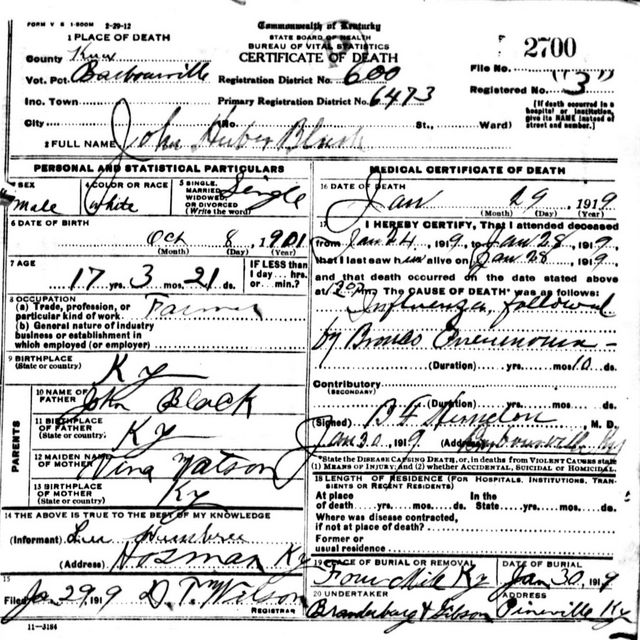 FORM V S 1-500M 2-29-12
Commonwealth of Kentucky
STATE BOARD OF HEALTH
BUREAU OF VITAL STATISTICS
CERTIFICATE OF DEATH
1 PLACE OF DEATH
County Knox
Vot. Pct. Barbourville
Inc. Town
City
Registration District No. 600
Primary Registration District No. 6473
(No. St., Ward)
File No. 2700
Registered No. 3
[If death occurred in a hospital or institution, give its NAME instead of street and number.]
2 FULL NAME John Black
PERSONAL AND STATISTICAL PARTICULARS
3 SEX
male
4 COLOR OR RACE
White
5 SINGLE, MARRIED, WIDOWED OR DIVORCED (Write the word)
Single
6 DATE OF BIRTH
Oct 8, 1901
(Month) (Day) (Year)
7 AGE
17 yrs. 3 mos. 21 ds.
IF LESS than 1 day... hrs. or... min.?
8 OCCUPATION
(a) Trade, profession, or particular kind of work
Farmer
(b) General nature of industry business or establishment in which employed (or employer)
9 BIRTHPLACE
(State or country)
Ky
PARENTS
10 NAME OF FATHER
John Black
11 BIRTHPLACE OF FATHER
(State or country)
Ky
12 MAIDEN NAME OF MOTHER
Nina Watson
13 BIRTHPLACE OF MOTHER
(State or country)
Ky
14 THE ABOVE IS TRUE TO THE BEST OF MY KNOWLEDGE
(Informant)
(Address) Ky
15
Filed Ja 29, 1919 D. T. Wilson
REGISTRAR
11-3184
MEDICAL CERTIFICATE OF DEATH
16 DATE OF DEATH
Jan 29, 1919
(Month) (Day) (Year)
17 I HEREBY CERTIFY, That I attended deceased
from Jan 24, 1919, to Jan 28, 1919,
that I last saw him alive on Jan 28, 1919
and that death occurred on the date stated above
at 12 m. The CAUSE OF DEATH* was as follows:
Influenza, followed
by Pneumonia
(Duration) yrs. mos. 10 ds.
Contributory
(SECONDARY)
(Duration) yrs. mos. ds.
(Signed) B F Herndon, M. D.
Jan 30, 1919 (Address) Barbourville Ky
*State the DISEASE CAUSING DEATH, or, in deaths from VIOLENT CAUSES state (1) MEANS OF INJURY; and (2) whether ACCIDENTAL, SUICIDAL OR HOMICIDAL.
18 LENGTH OF RESIDENCE (FOR HOSPITALS, INSTITUTIONS, TRANSIENTS OR RECENT RESIDENTS)
At place of death yrs. mos. ds. In the State yrs. mos. ds.
Where was disease contracted, if not at place of death?
Former or usual residence
19 PLACE OF BURIAL OR REMOVAL
Four Mile Ky
DATE OF BURIAL
Jan 30, 1919
20 UNDERTAKER
ADDRESS
Pineville Ky